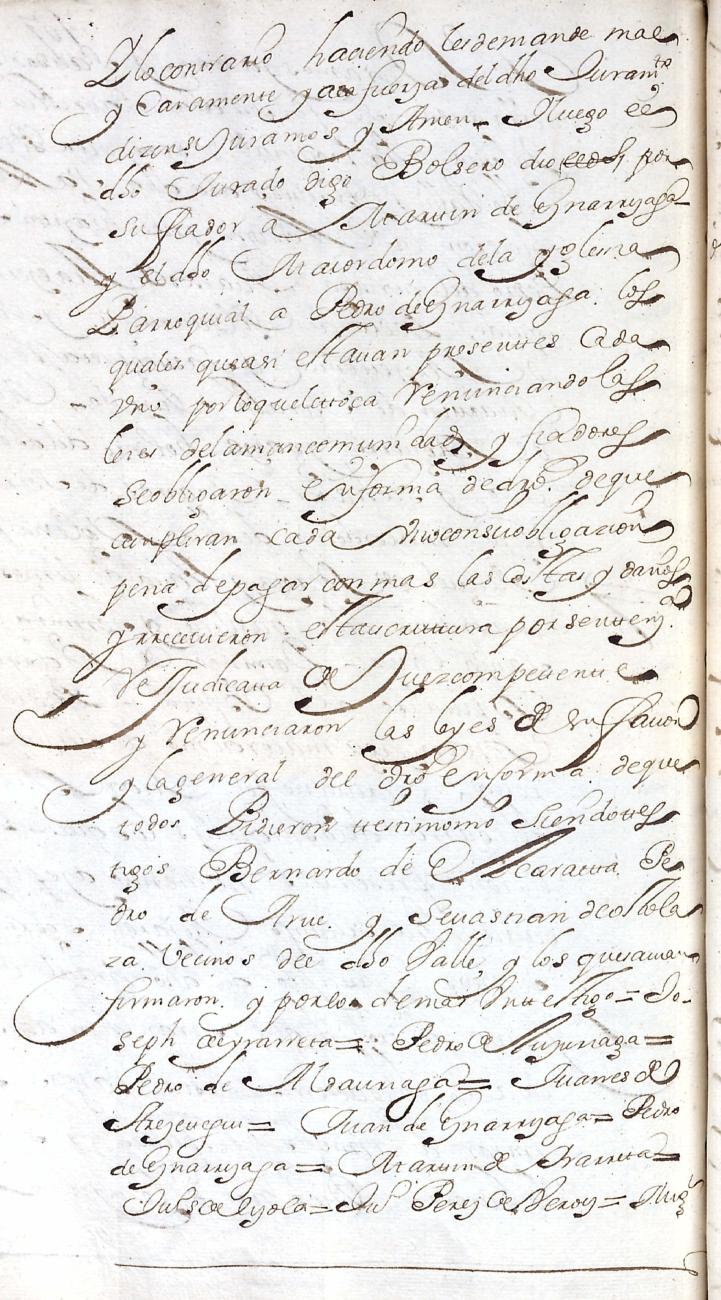 Y lo contrario haciendo les demande mal
y Caramente y a la fuerza del dho Juramto
dizen si Juramos y Amen. Y luego el
dho Jurado digo Bolsero dio por
su fiador a Martin de Gnarryaga
y el dho Maiordomo dela Yglesia
Parroquial a Pedro de Gnarryaga. los
quales que asi estauan presentes Cada
vno por lo que le toca renunciando las
leies dela mancomunidad, y fiadores
se obligaron en forma de dro. de que
cumpliran cada vno con su obligazion
pena de pagar con mas las costas y daños
y rrecivieron esta escrittura por senttenza
de Judicatta de Juez competente
y renunciaron las leyes de su fauor
y la general del dro en forma. de que
todos Pidieron testimonio siendo tes
tigos Bernardo de Mearatta. Pe
dro de Arue. y Sevastian de ostola
za Vecinos del dho Valle, y los que sauian
firmaron. y por los demas Un testigo = Jo-
seph de yrarreta = Pedro de
Pedro de Aldaurriaga = Juanes de
Arejeuegui = Juan de Gnarryaga = Pedro
de Gnarryaga = Martin de Yrarreta =
de loyola = Jul Perez de Veroy =